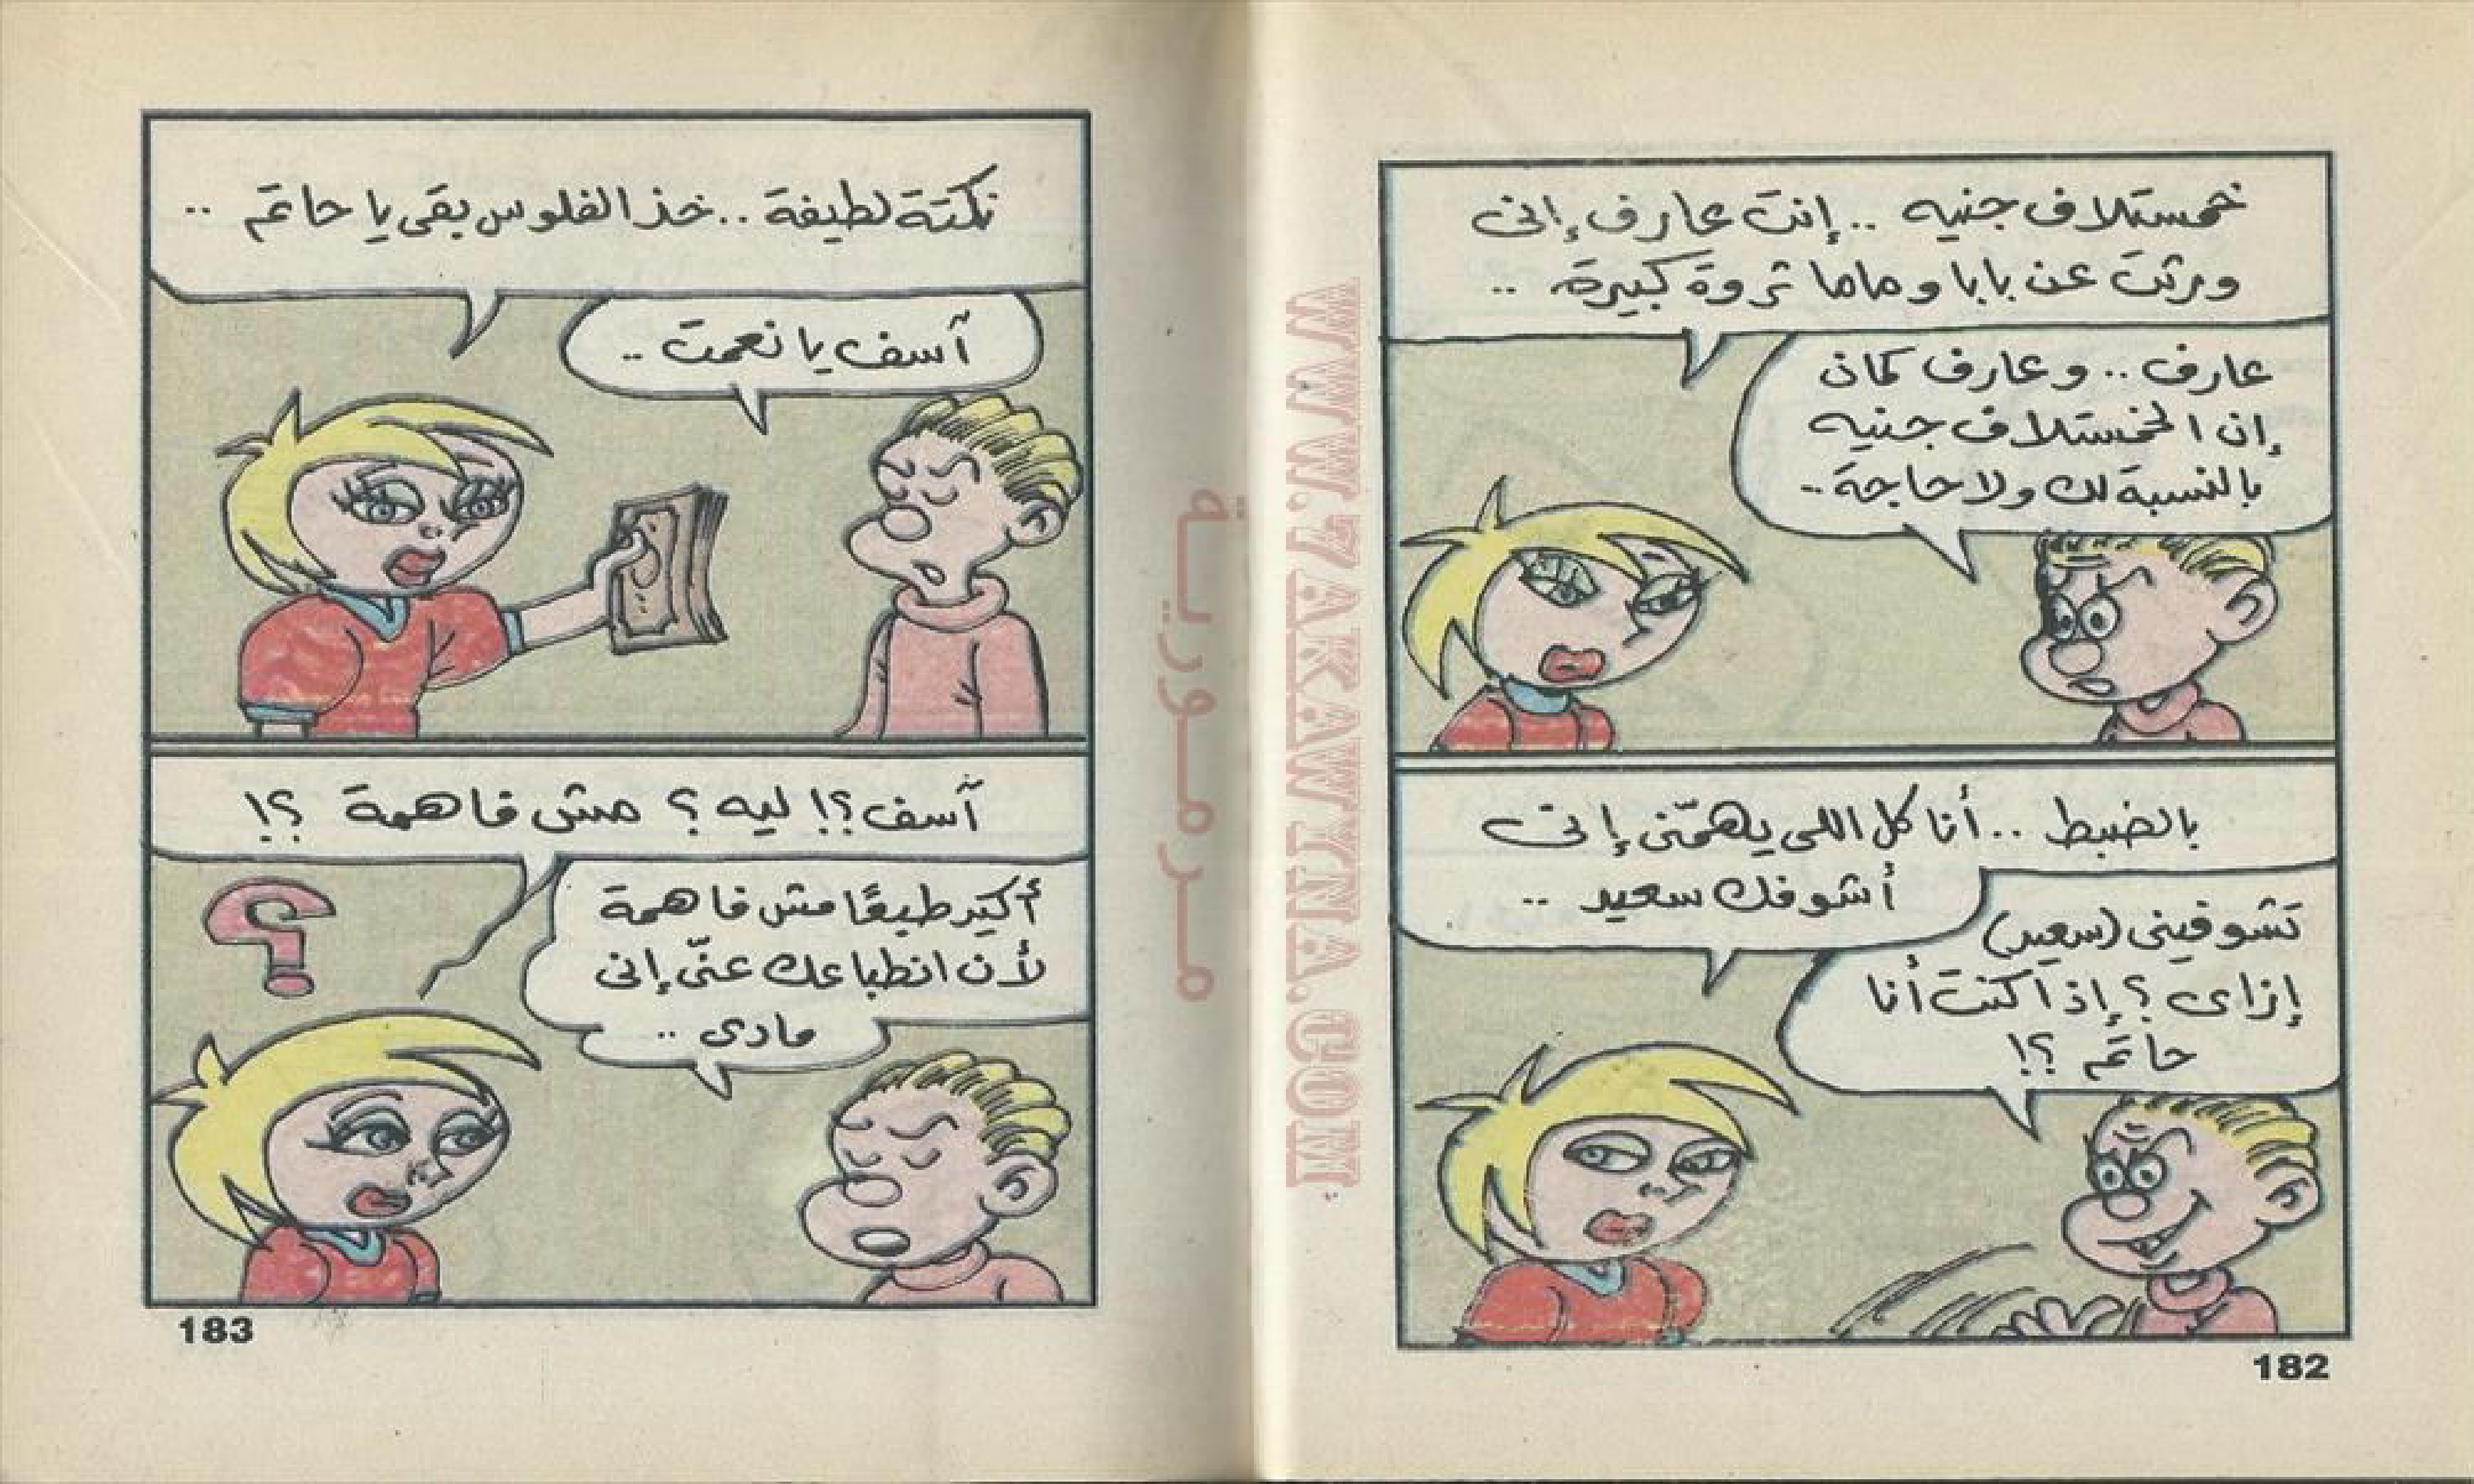 خمستلاف جنيه .. إنت عارف إنى
ورثت عن بابا وماما ثروة كبيرة ..
عارف .. وعارف كمان
إن الخمستلاف جنيه
بالنسبة لك ولا حاجة ..
بالضبط .. أنا كل اللى يهمّنى إنى
أشوفك سعيد ..
تشوفينى (سعيد)
إزاى ؟ إذا كنت أنا
حاتم ؟!
182
WWW.7AKAWYNA.COM
مرمورية
نكتة لطيفة .. خذ الفلوس بقى يا حاتم ..
آسف يا نعمت ..
آسف ؟! ليه ؟ مش فاهمة ؟!
أكيد طبعًا مش فاهمة
لأن انطباعك عنّى إنى
مادى ..
183